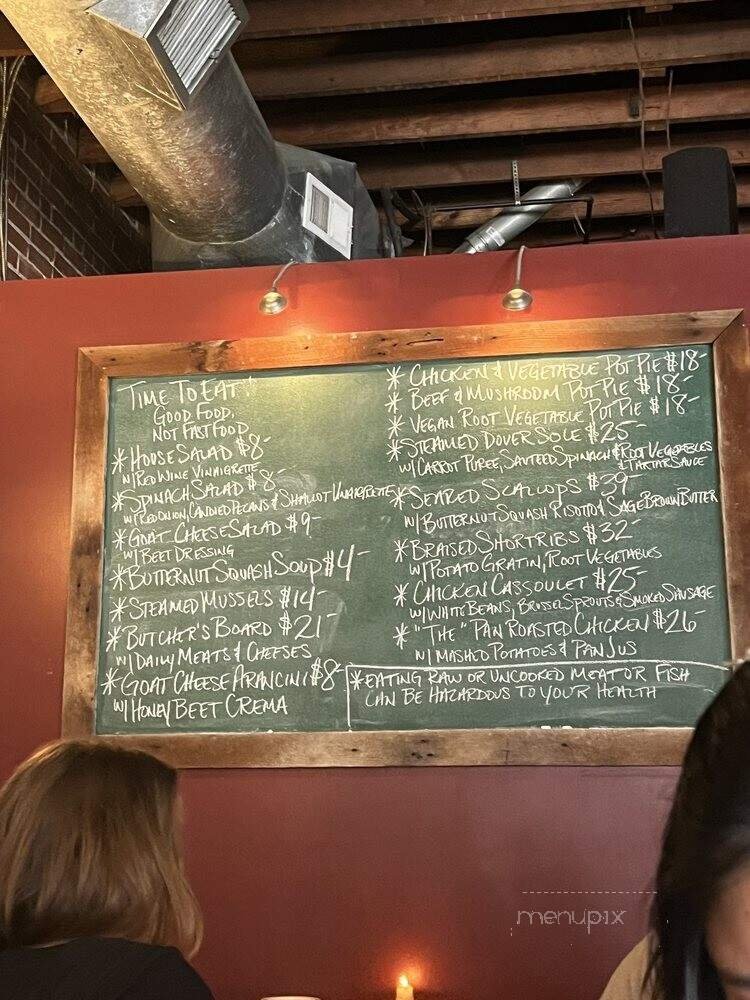 TIME TO EAT!!
GOOD FOOD,
NOT FAST FOOD
* HOUSE SALAD $8-
W/ RED WINE VINAIGRETTE
* SPINACH SALAD $8-
W/ RED ONION, CANDIED PECANS & SHALLOT VINAIGRETTE
* GOAT CHEESE SALAD $9-
W/ BEET DRESSING
* BUTTERNUT SQUASH SOUP $4-
* STEAMED MUSSELS $14-
* BUTCHER'S BOARD $21-
W/ DAILY MEATS & CHEESES
* GOAT CHEESE ARANCINI $8-
W/ HONEY BEET CREMA
* CHICKEN & VEGETABLE POT PIE $18-
* BEEF & MUSHROOM POT PIE $18-
* VEGAN ROOT VEGETABLE POT PIE $18-
* STEAMED DOVER SOLE $25-
W/ CARROT PUREE, SAUTEED SPINACH & ROOT VEGETABLES
& TARTAR SAUCE
* SEARED SCALLOPS $39-
W/ BUTTERNUT SQUASH RISOTTO & SAGE BROWN BUTTER
* BRAISED SHORT RIBS $32-
W/ POTATO GRATIN, ROOT VEGETABLES
* CHICKEN CASSOULET $25-
W/ WHITE BEANS, BRUSSEL SPROUTS & SMOKED SAUSAGE
* "THE" PAN ROASTED CHICKEN $26-
W/ MASHED POTATOES & PAN JUS
* EATING RAW OR UNCOOKED MEAT OR FISH
CAN BE HAZARDOUS TO YOUR HEALTH
menupix